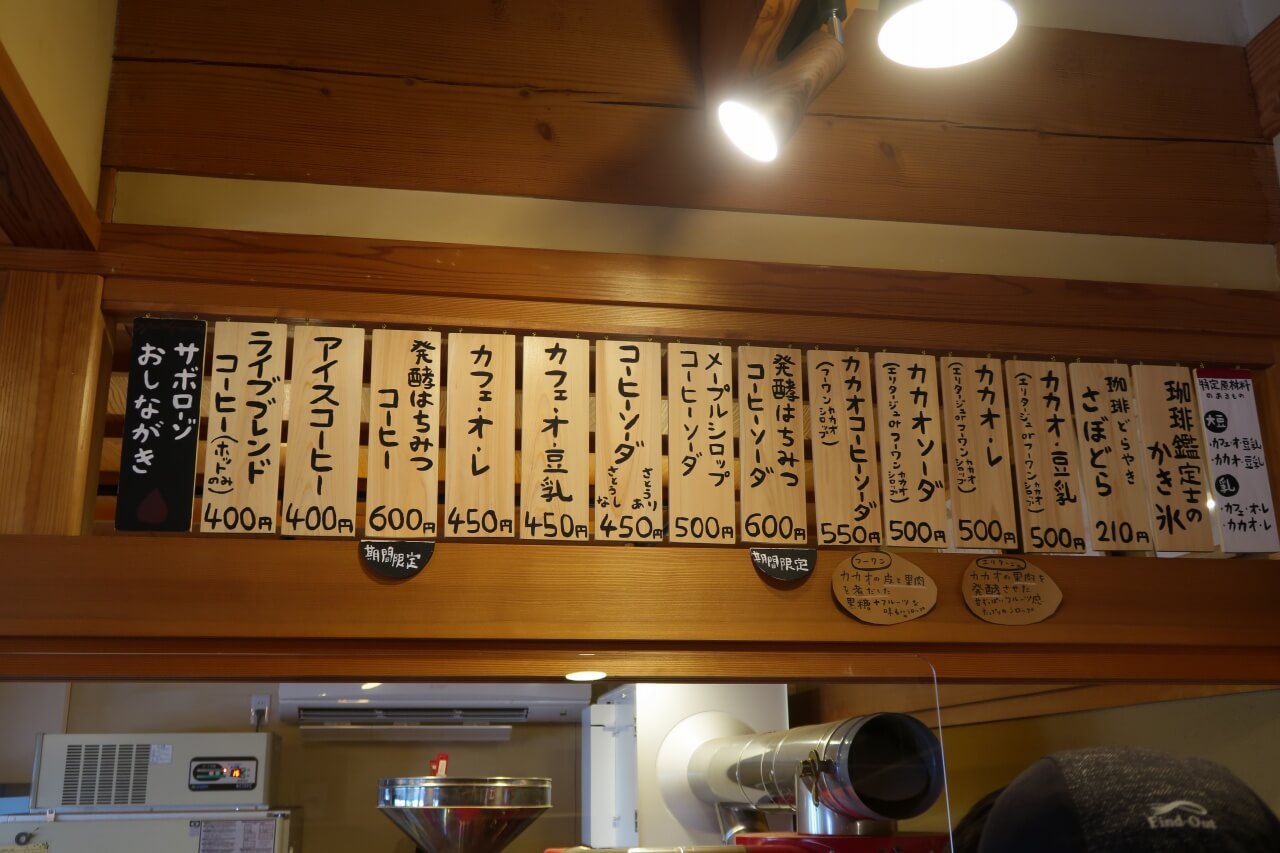 サボローゾ
おしながき
ライブブレンド
コーヒー(ホットのみ)
400円
アイスコーヒー
400円
発酵はちみつ
コーヒー
600円
期間限定
カフェ・オ・レ
450円
カフェ・オ・豆乳
450円
コーヒーソーダ
さとうあり
さとうなし
450円
メープルシロップ
コーヒーソーダ
500円
発酵はちみつ
コーヒーソーダ
600円
期間限定
カカオコーヒーソーダ
(フーワンカカオシロップ)
550円
カカオソーダ
(エリタージュorフーワンカカオシロップ)
500円
カカオ・レ
(エリタージュorフーワンカカオシロップ)
500円
カカオ・豆乳
(エリタージュorフーワンカカオシロップ)
500円
珈琲どらやき
さぼどら
210円
珈琲鑑定士の
かき氷
特定原材料
のあるもの
大豆
・カフェオ豆乳
・カカオ・豆乳
乳
・カフェ・オ・レ
・カカオ・レ
フーワン
カカオの皮と果肉
を煮だした
黒糖+フルーツな
味わいシロップ
エリタージュ
カカオの果肉を
発酵させた
甘ずっぱフルーツ感
たっぷりのシロップ
Find-Out